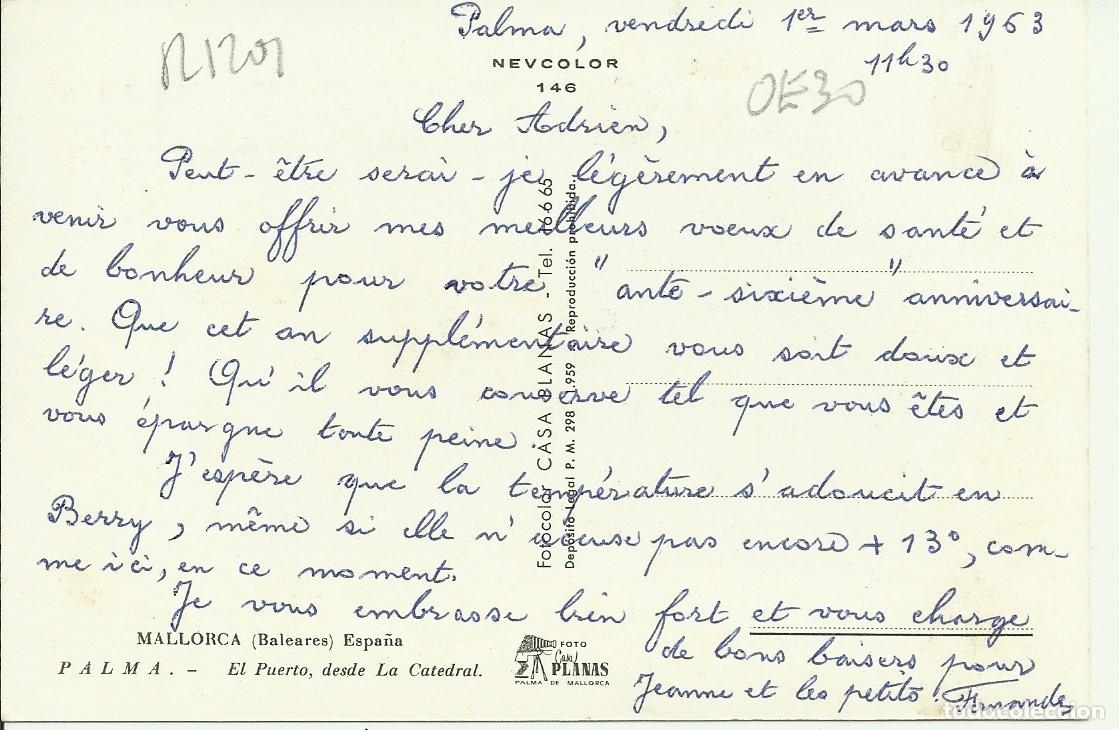 Palma, vendredi 1er mars 1963
11h30
NEVCOLOR
146
OE30
Cher Adrien,
Peut-être serai-je légèrement en avance à
venir vous offrir mes meilleurs voeux de santé et
de bonheur pour votre "ante-sixième" anniversai-
re. Que cet an supplémentaire vous soit doux et
léger ! Qu'il vous conserve tel que vous êtes et
vous épargne toute peine.
J'espère que la température s'adoucit en
Berry, même si elle n'accuse pas encore + 13°, com-
me ici, en ce moment.
Je vous embrasse bien fort et vous charge
de bons baisers pour
Jeanne et les petits. Fernande
Fotocolor CASA PLANAS - Tel. 16665
Depósito Legal P. M. 298 - 1.959 Reproducción prohibida.
MALLORCA (Baleares) España
PALMA. - El Puerto, desde La Catedral.
FOTO
Casa
PLANAS
PALMA DE MALLORCA
todocoleccion